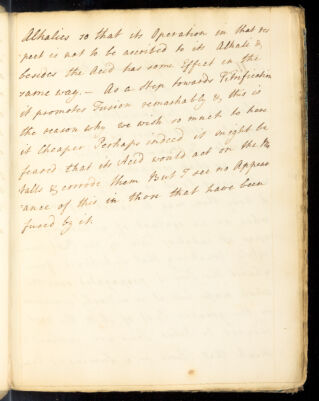 Alkalies so that its Operation in that res
-pect is not to be ascribed to its Alkali &
besides the Acid has some Effect in the
same way. — As a step towards Vitrification
it promotes Fusion remarkably & this is
the reason why we wish so much to have
it cheaper Perhaps indeed it might be
feared that its Acid would act on the Me
talls & corrode them But I see no Appear
-ance of this in those that have been
fused by it.